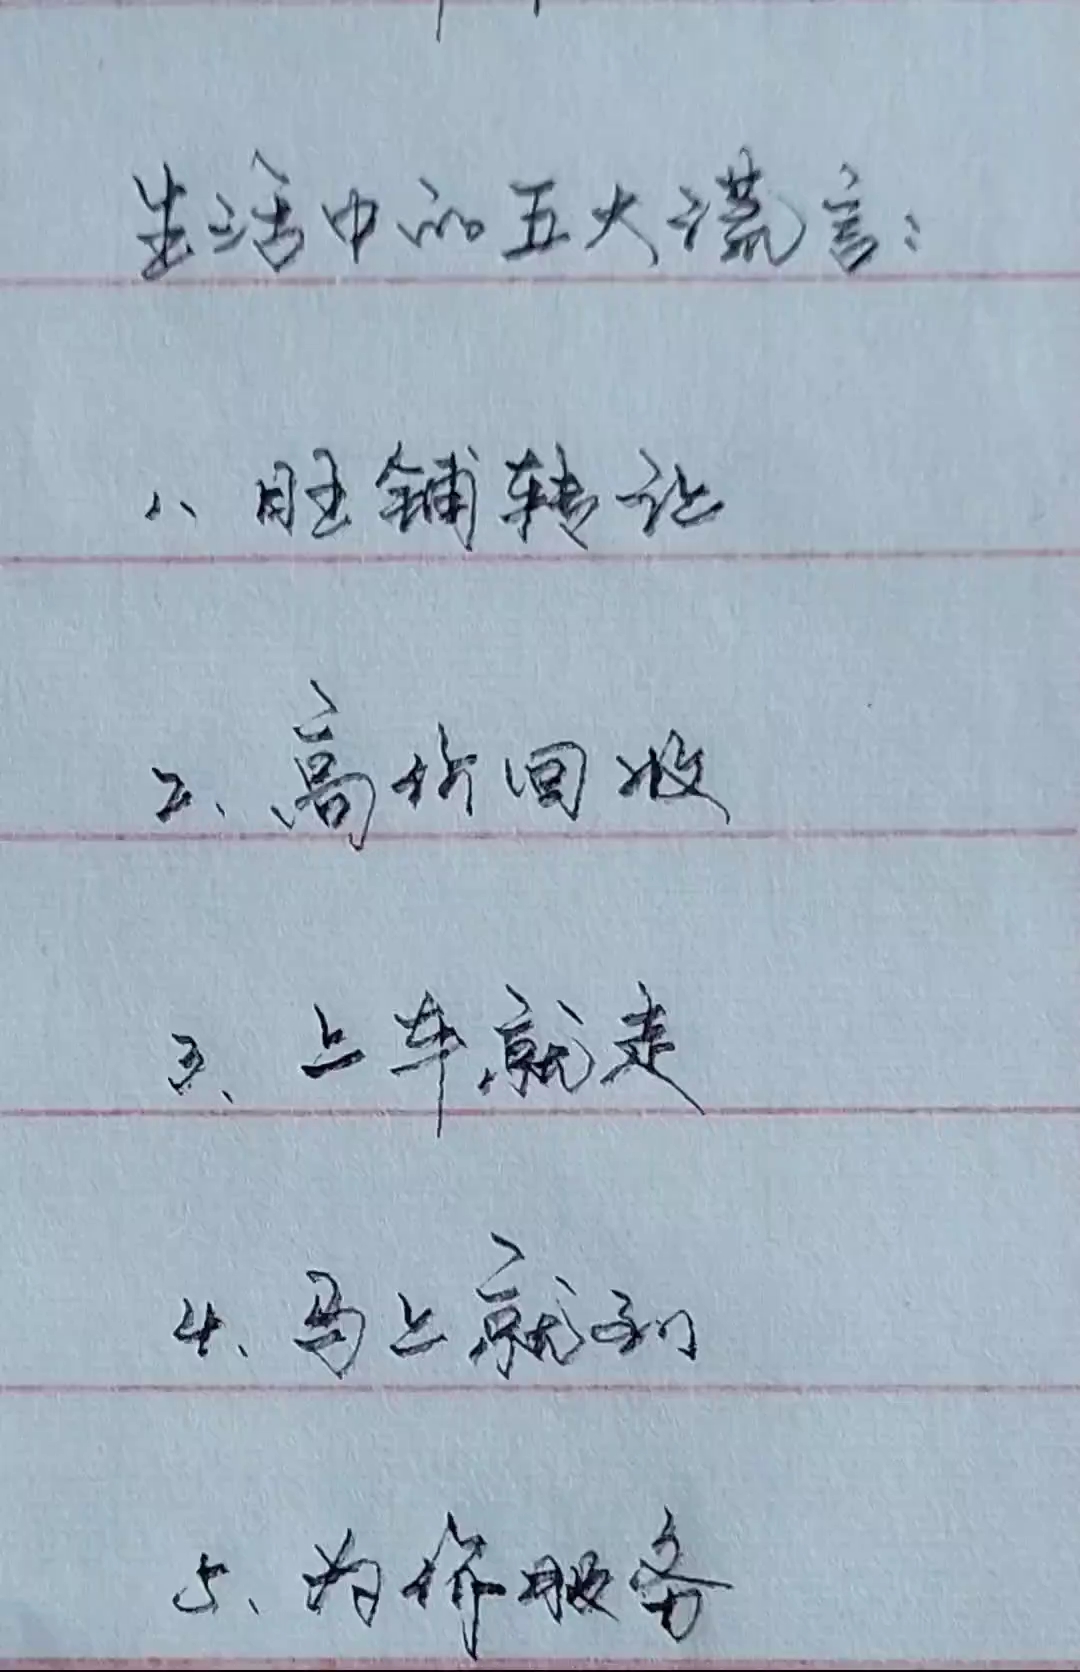 生活中的五大谎言：
1、旺铺转让
2、高价回收
3、上车就走
4、马上就到
5、为你服务